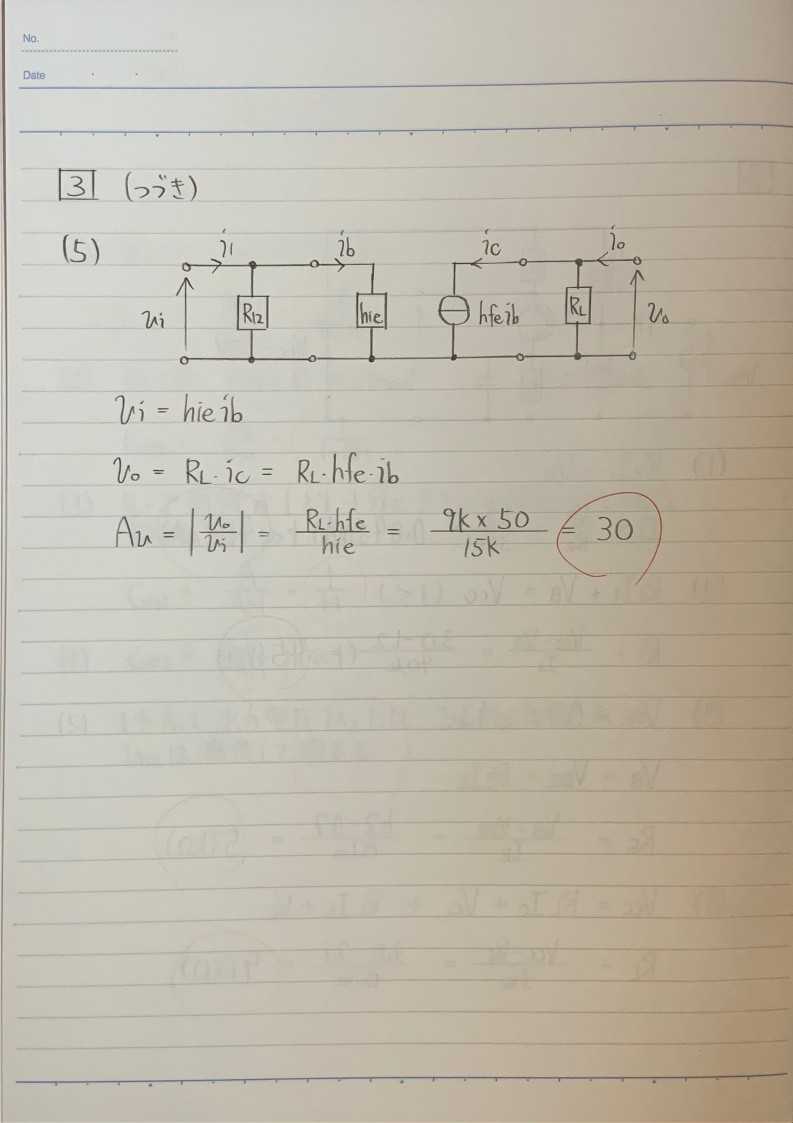 No.
Date
3 (つづき)
(5)
i1 ib ic io
vi R12 hie hfeib RL vo
vi = hie ib
vo = RL・ic = RL・hfe・ib
Av = |vo/vi| = RL・hfe/hie = 9k×50/15k = 30